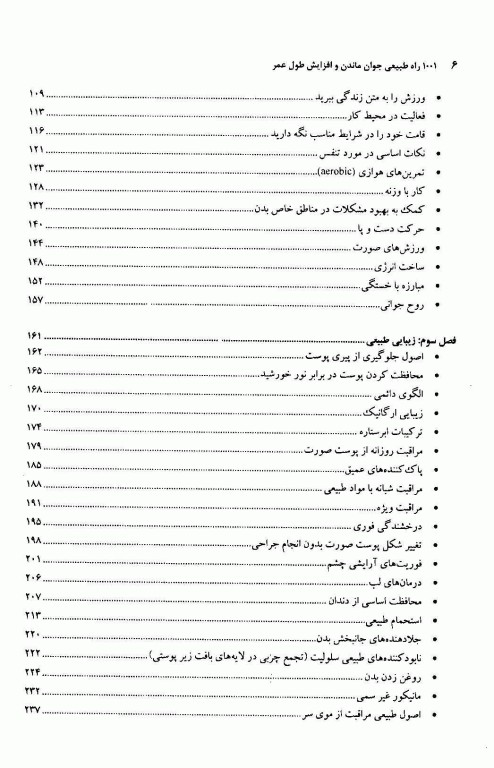 ۶ ۱۰۰۱ راه طبیعی جوان ماندن و افزایش طول عمر
• ورزش را به متن زندگی ببرید ........ ۱۰۹
• فعالیت در محیط کار ........ ۱۱۳
• قامت خود را در شرایط مناسب نگه دارید ........ ۱۱۶
• نکات اساسی در مورد تنفس ........ ۱۲۱
• تمرین‌های هوازی (aerobic) ........ ۱۲۳
• کار با وزنه ........ ۱۲۸
• کمک به بهبود مشکلات در مناطق خاص بدن ........ ۱۳۲
• حرکت دست و پا ........ ۱۴۰
• ورزش‌های صورت ........ ۱۴۴
• ساخت انرژی ........ ۱۴۸
• مبارزه با خستگی ........ ۱۵۲
• روح جوانی ........ ۱۵۷
فصل سوم: زیبایی طبیعی ........ ۱۶۱
• اصول جلوگیری از پیری پوست ........ ۱۶۲
• محافظت کردن پوست در برابر نور خورشید ........ ۱۶۵
• الگوی دائمی ........ ۱۶۸
• زیبایی ارگانیک ........ ۱۷۰
• ترکیبات ابرستاره ........ ۱۷۴
• مراقبت روزانه از پوست صورت ........ ۱۷۹
• پاک‌کننده‌های عمیق ........ ۱۸۵
• مراقبت شبانه با مواد طبیعی ........ ۱۸۸
• مراقبت ویژه ........ ۱۹۱
• درخشندگی فوری ........ ۱۹۵
• تغییر شکل پوست صورت بدون انجام جراحی ........ ۱۹۸
• فوریت‌های آرایشی چشم ........ ۲۰۱
• درمان‌های لب ........ ۲۰۶
• محافظت اساسی از دندان ........ ۲۰۷
• استحمام طبیعی ........ ۲۱۳
• جلادهنده‌های جانبخش بدن ........ ۲۲۰
• نابودکننده‌های طبیعی سلولیت (تجمع چربی در لایه‌های بافت زیر پوستی) ........ ۲۲۲
• روغن زدن بدن ........ ۲۲۴
• مانیکور غیر سمی ........ ۲۳۲
• اصول طبیعی مراقبت از موی سر ........ ۲۳۷